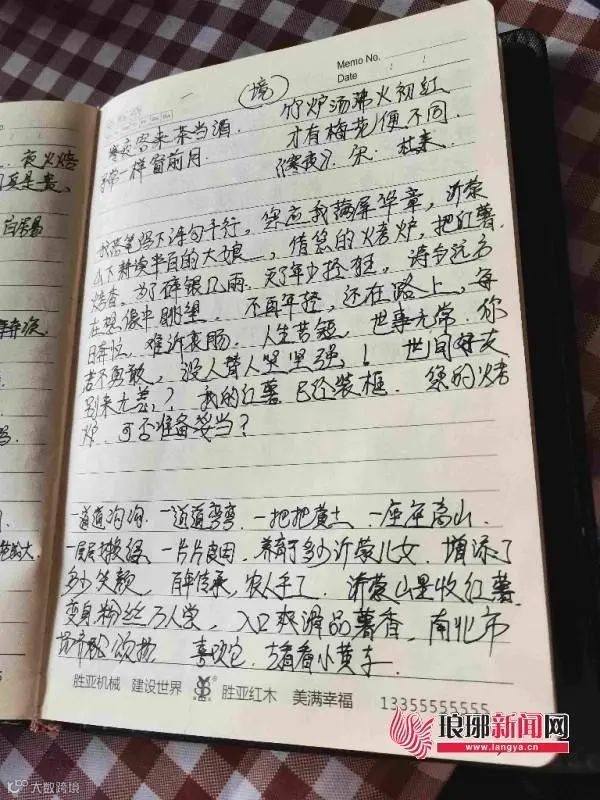 Memo No.
Date
(境)
竹炉汤沸火初红
寒夜客来茶当酒
才有梅花便不同
寻常一样窗前月
《寒夜》 宋 杜耒
夜火焙
白居易
我落笔写下诗句千行,您应我满屏华章,沂蒙
山下耕读半百的大娘,借您的烤炉,把红薯
烤香,为了碎银几两,
在想像中眺望,不再年轻,还在路上,每
日奔忙,难诉衷肠,人生苦短,世事无常,你
若不勇敢,没人替人坚强! 世间好友
别来无恙? 我的红薯已经装框,您的烤
炉,可否准备妥当?
一道道沟沟,一道道弯弯,一把把黄土,一座座高山,
一片片良田,养育了多少沂蒙儿女,增添了
多少笑颜,百年传承,农人手了,沂蒙山里收红薯,
变身粉丝万人尝,入口爽滑品薯香,南北市
喜欢它,请看小黄李
胜亚机械 建设世界 胜亚红木 美满幸福 13355555555
琅琊新闻网
www.langya.cn
大数跨境